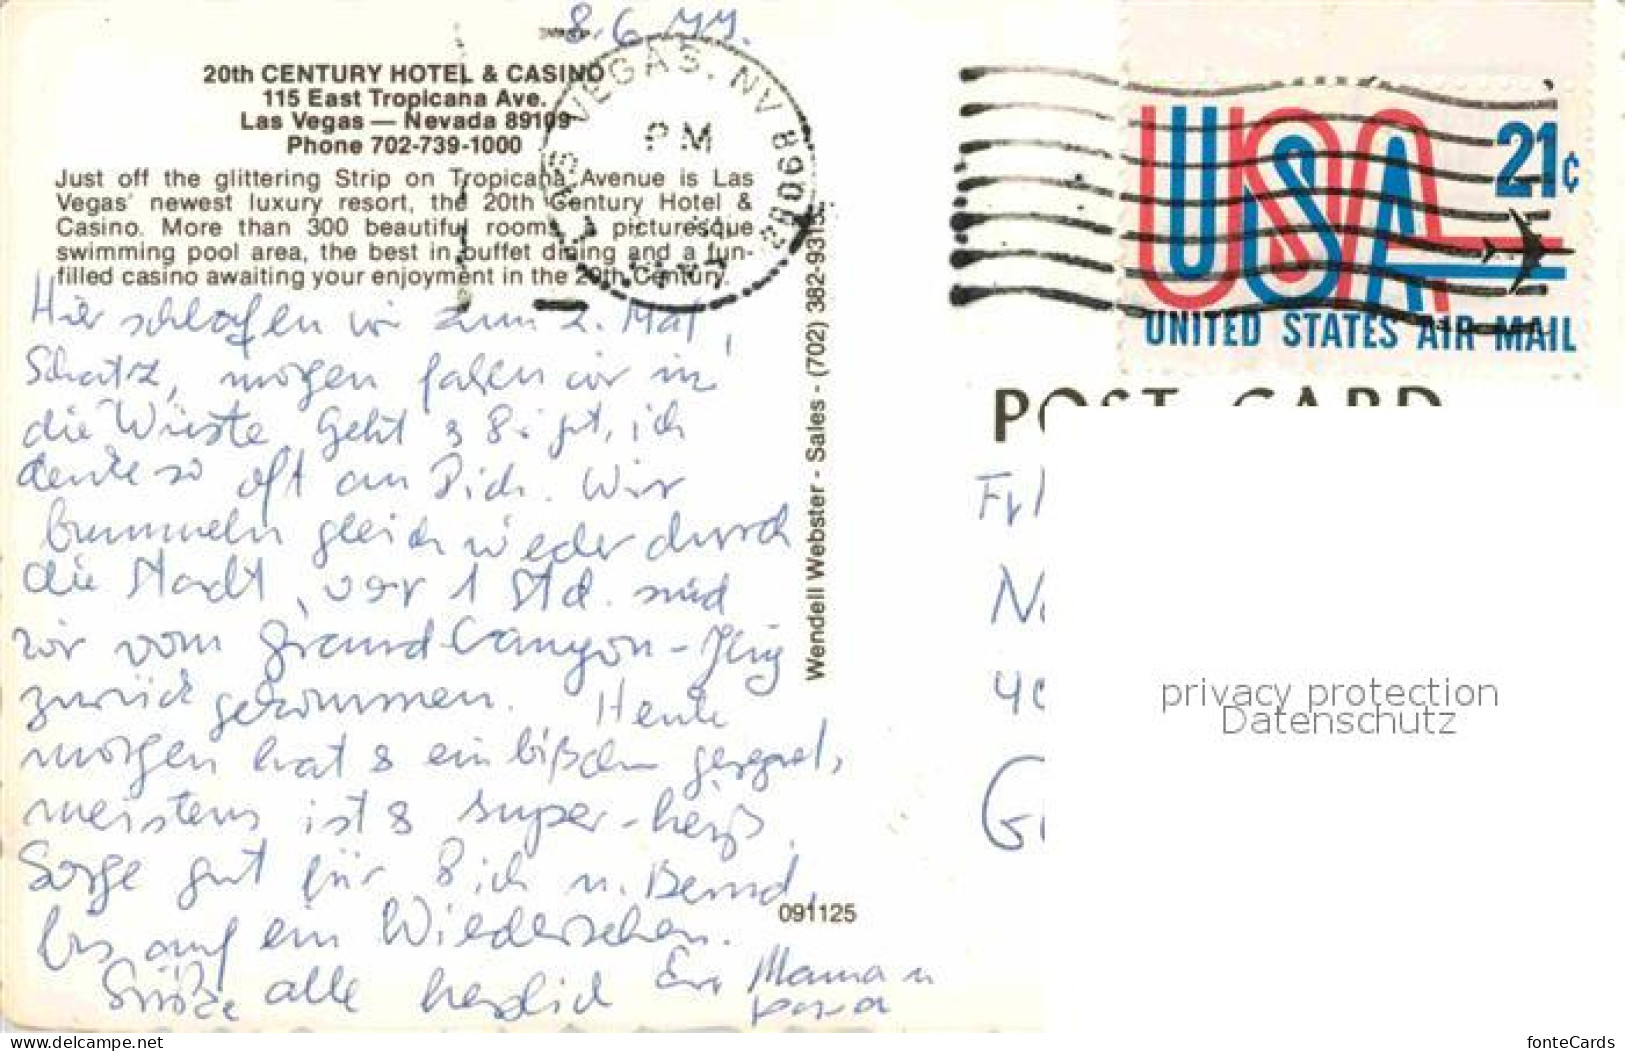 8.6.77.
20th CENTURY HOTEL & CASINO
115 East Tropicana Ave.
Las Vegas — Nevada 89109
Phone 702-739-1000
Just off the glittering Strip on Tropicana Avenue is Las
Vegas' newest luxury resort, the 20th Century Hotel &
Casino. More than 300 beautiful rooms, a picturesque
swimming pool area, the best in buffet dining and a fun-
filled casino awaiting your enjoyment in the 20th Century.
LAS VEGAS, NV 890
PM
Hier schlafen wir zum 2. Mal,
Schatz, morgen fahren wir in
die Wüste. Geht's Dir gut, ich
denke so oft an Dich. Wir
bummeln gleich wieder durch
die Stadt, vor 1 Std. sind
wir vom Grand Canyon-Flug
zurück gekommen. Heute
morgen hat's ein bißchen geregnet,
meistens ist's super-heiß.
Sorge gut für Dich u. Bernd,
bis auf ein Wiedersehen.
Grüße alle herzlich Eure Mama u
Papa
Wendell Webster - Sales - (702) 382-9315
091125
USA
21¢
UNITED STATES AIR MAIL
POST CARD
Frl
40
privacy protection
Datenschutz
www.delcampe.net
fonteCards